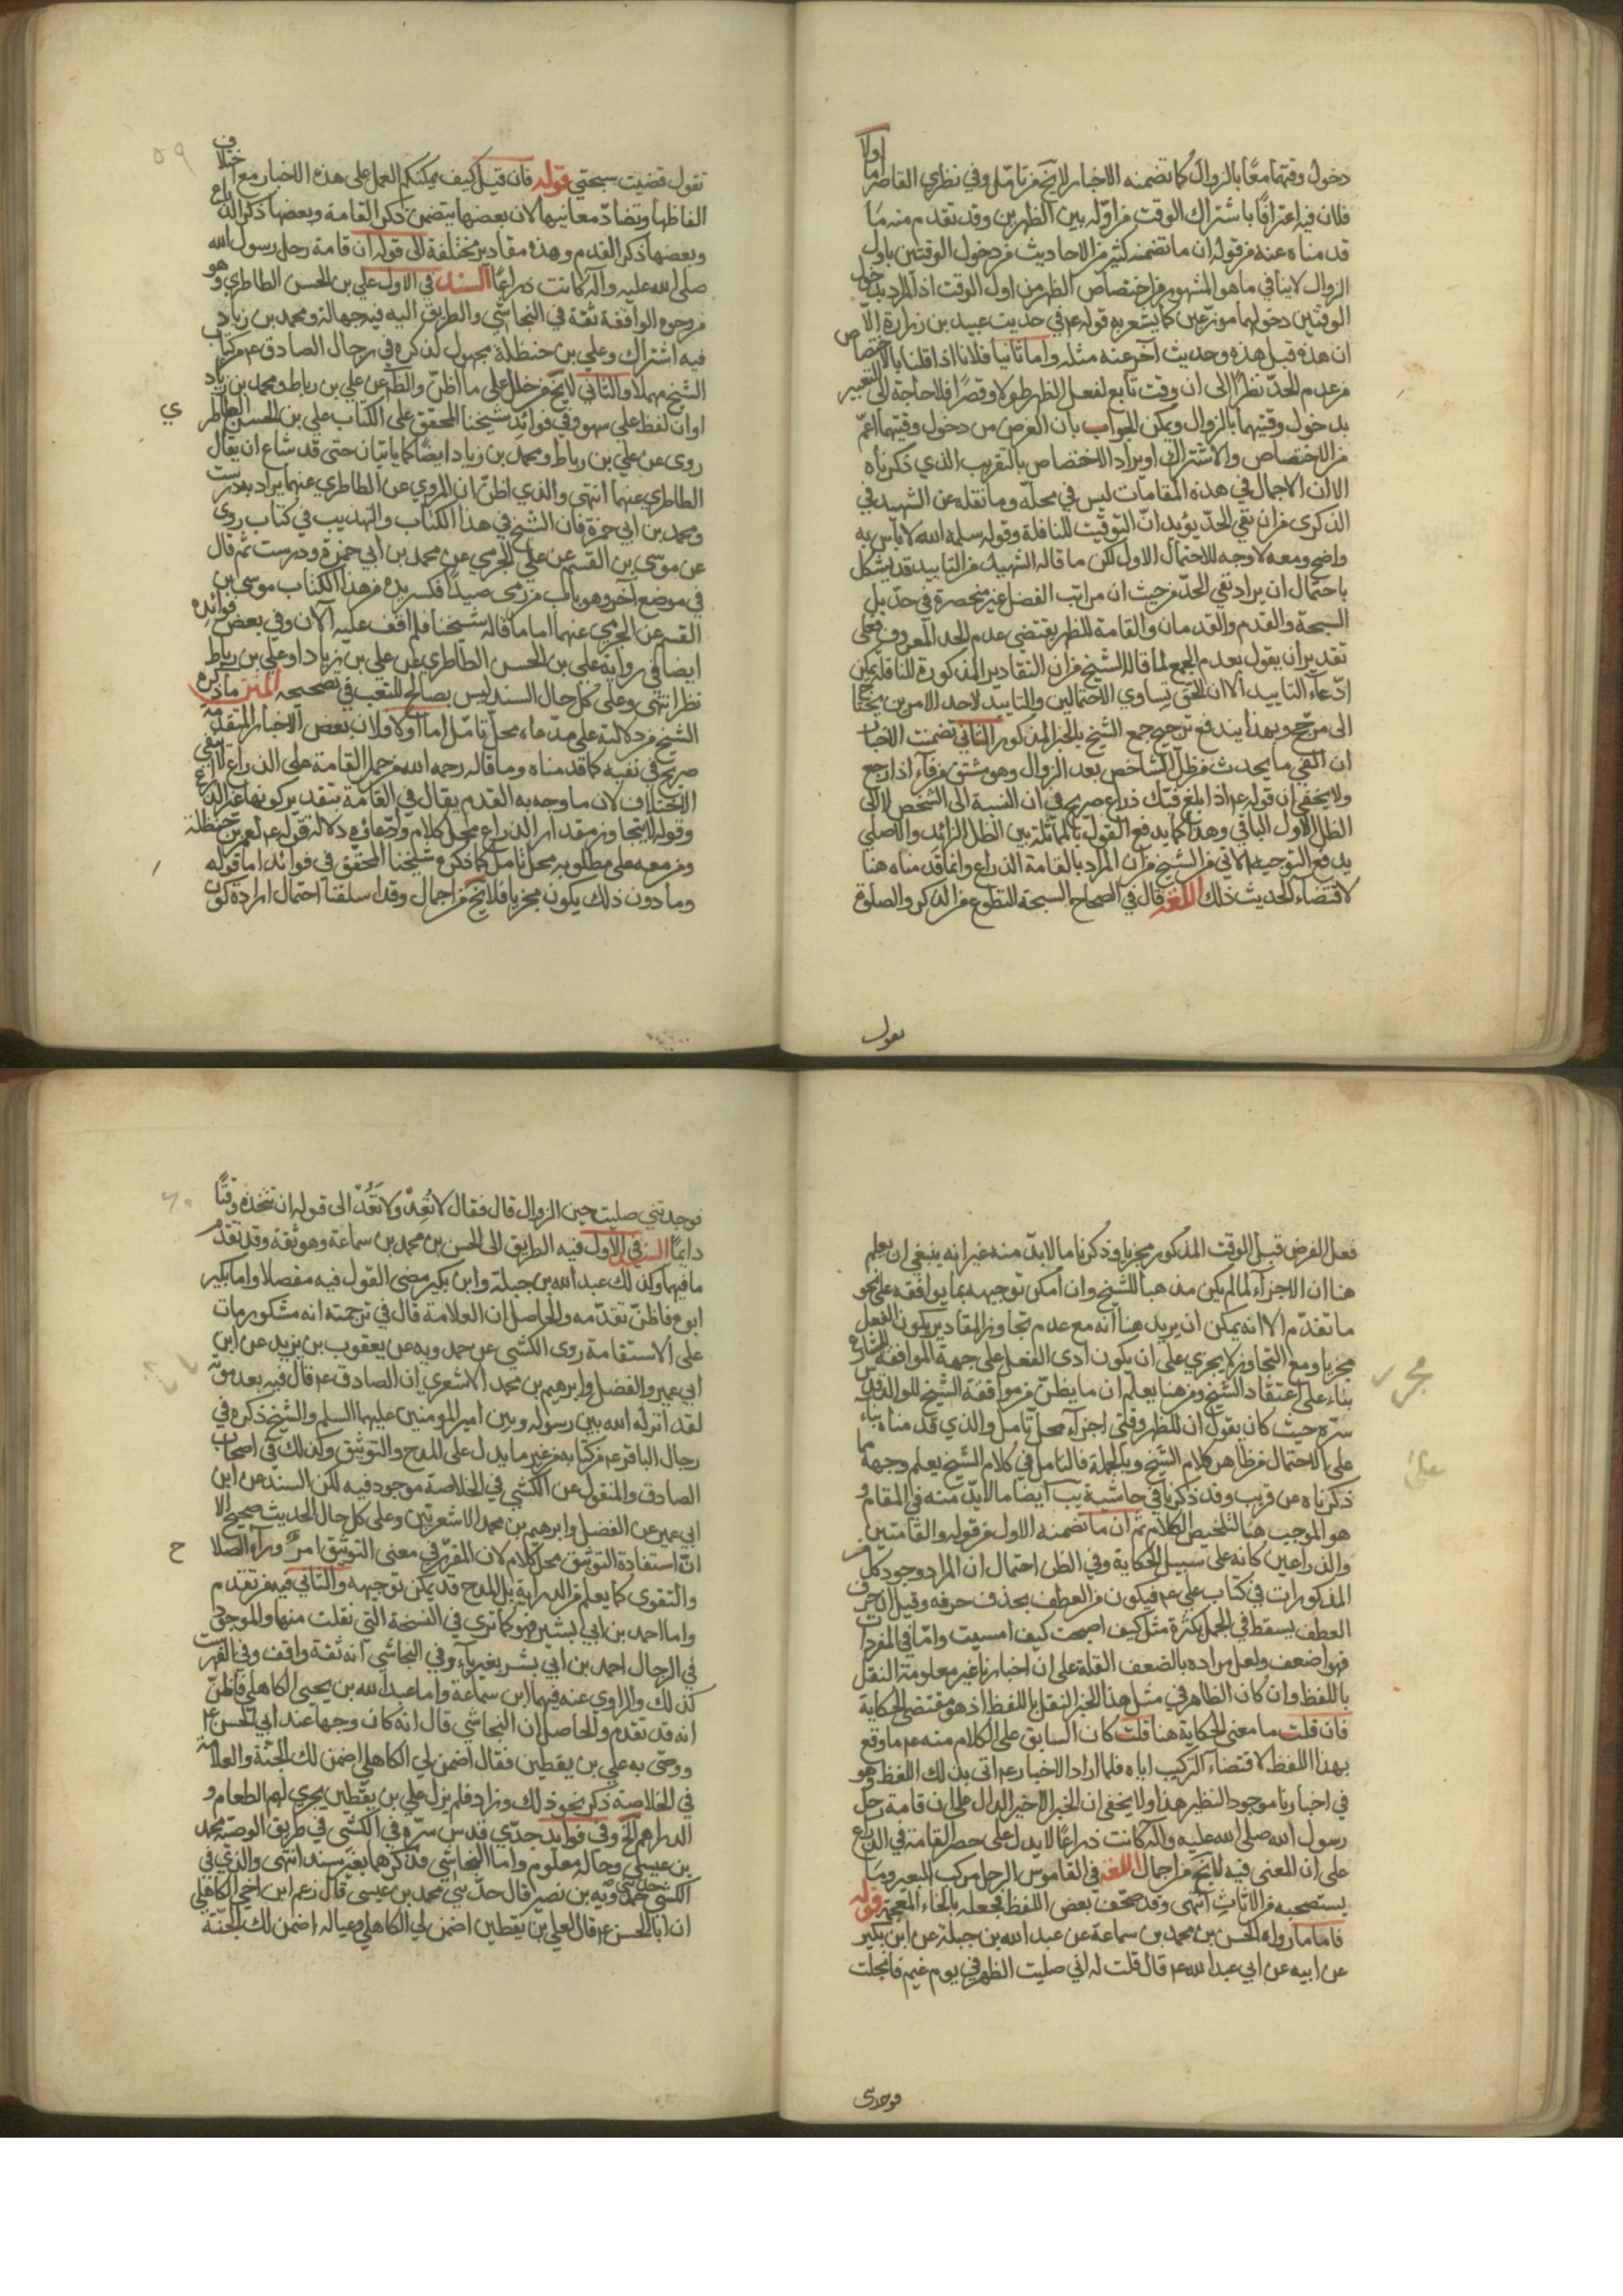 دخول وقتهما معًا بالزوال كما تضمنه الاخبار لا يخ من تامل وفي نظري القاصر اما اولا
فلان فيه اعترافًا باشتراك الوقت من اوّله بين الظهرين وقد تقدم منه مَا
قدمناه عنه من قوله ان ما تضمنه كثير من الاحاديث من دخول الوقتين باول
الزوال لا ينافي ما هو المشهور من اختصاص الظهر من اول الوقت اذ المراد بدخول
الوقتين دخولهما موزعين كما يشعر به قوله ع في حديث عبيد بن زرارة الا
ان هذه قبل هذه وحديث آخر عنه مثله واما ثانيا فلانا اذا قلنا بالاختصاص
من عدم الحدّ نظرًا الى ان وقت تابع لفعل الظهر طولا وقصرًا فلا حاجة الى التعبير
بدخول وقتيهما بالزوال ويمكن الجواب بان الغرض من دخول وقتيهما اعمّ
من الاختصاص والاشتراك او يراد الاختصاص بالتقريب الذي ذكرناه
الا ان الاجمال في هذه المقامات ليس في محلّه وما نقله عن الشهيد في
الذكرى من ان نفي الحدّ يؤيد انّ التوقيت للنافلة وقوله سلمه الله لا باس به
واضح ومعه لا وجه للاحتمال الاول لكن ما قاله الشهيد من التاييد قد يشكل
باحتمال ان يراد نفي الحدّ من حيث ان مراتب الفضل غير منحصرة في حدّ بل
السبحة والقدم والقدمان والقامة للظهر يقتضي عدم الحد المعروف فعلى
تقدير ان يقول بعدم الجمع لما قاله الشيخ من ان التقادير المذكورة للنافلة يمكن
ادّعاء التاييد الا ان الحق تساوي الاحتمالين والتاييد لاحد الامرين يحتاج
الى مرجّح وبهذا يندفع ترجيح جمع الشيخ بالخبر المذكور الثاني تضمنت الاخبار
ان الفي ما يحدث من ظل الشاخص بعد الزوال وهو مشتق من فاء اذا رجع
ولا يخفى ان قوله ع اذا بلغ فيئك ذراع صريح في ان النسبة الى الشخص لا الى
الظل الاول الباقي وهذا كما يدفع القول بالمماثلة بين الظل الزائد والاصلي
يدفع التوجيه الاتي من الشيخ من ان المراد بالقامة الذراع وانما قدمناه هنا
لاقتضاء الحديث ذلك اللغه قال في الصحاح السبحة التطوع من الذكر والصلوة
تقول
٥٩
تقول قضيت سبحتي قوله فان قيل كيف يمكنكم العمل على هذه الاخبار مع اختلاف
الفاظها وتضادّ معانيها لان بعضها يتضمن ذكر القامة وبعضها ذكر الذراع
وبعضها ذكر القدم وهذه مقادير مختلفة الى قوله ان قامة رحل رسول الله
صلى الله عليه وآله كانت ذراعًا السند في الاول علي بن الحسن الطاطري وهو
من وجوه الواقفة ثقة في النجاشي والطريق اليه فيه جهالة ومحمد بن زياد
فيه اشتراك وعلي بن حنظلة مجهول لذكره في رجال الصادق ع من كتاب
الشيخ مهملا والثاني لا يخ من خلل على ما اظن والظم عن علي بن رباط ومحمد بن زياد
او ان لفظ على سهو وفي فوائد شيخنا المحقق على الكتاب علي بن الحسن الطاطر
ي
روى عن علي بن رباط ومحمد بن زياد ايضًا كما ياتيان حتى قد شاع ان يقال
الطاطري عنهما انتهى والذي اظنّ ان المروي عن الطاطري عنهما يراد به درست
ومحمد بن ابي حمزة فان الشيخ في هذا الكتاب والتهذيب في كتاب روى
عن موسى بن القسم عن علي الجرمي عن محمد بن ابي حمزة ودرست ثم قال
في موضع آخر وهو باب من رمى صيدًا فكسر يده من هذا الكتاب موسى بن
القسم عن الجرمي عنهما اما ما قاله شيخنا فلم اقف عليه الآن وفي بعض فوائده
ايضا في رواية علي بن الحسن الطاطري عن علي بن زياد او علي بن رباط
نظر انتهى وعلى كل حال السند ليس بصالح للتعب في تصحيحه المتن ما ذكره
الشيخ من دلالته على مدّعاه محلّ تامّل اما اولا فلان بعض الاخبار المتقدّمة
صريح في نفيه كما قدمناه وما قاله رحمه الله من حمل القامة على الذراع لا ينفي
الاختلاف لان ما وجه به القدم يقال في القامة بتقدير كونها غير الذراع
وقوله لا يتجاوز مقدار الذراع محل كلام وادّعائه دلالة قوله ع لعمر بن حنظلة
ومن معه على مطلوبه محل تامل كما ذكره شيخنا المحقق في فوائده اما قوله
وما دون ذلك يكون مجزيا فلا يخ من اجمال وقد اسلفنا احتمال ارادة كون
فعل الفرض قبل الوقت المذكور مجزيا وذكرنا ما لا بدّ منه غير انه ينبغي ان يعلم
هنا ان الاجزآء لما لم يكن مذهبًا للشيخ وان امكن توجيهه بما يوافقه على نحو
ما تقدّم الا انه يمكن ان يريد هنا انه مع عدم تجاوز المقادير يكون الفعل
مجزيا ومع التجاوز لا يجزي على ان يكون ادى الفعل على جهة الموافقة للشارع
بناء على اعتقاد الشيخ ومن هنا يعلم ان ما يظنّ من موافقة الشيخ للوالد قدس
سرّه حيث كان يقول ان للظهر وقتي اجزآء محلّ تامل والذي قدمناه بناء
على الاحتمال من ظاهر كلام الشيخ وبالجملة فالتامل في كلام الشيخ يعلم وجهه مما
ذكرناه عن قريب وقد ذكرنا في حاشية يب ايضًا ما لا بدّ منه في المقام و
هو الموجب هنا لتلخيص الكلام ثم ان ما تضمنه الاول من قوله والقامتين
والذراعين كانه على سبيل الحكاية وفي الظن احتمال ان المراد وجود كل من
المذكورات في كتاب علي ع فيكون من العطف بحذف حرفه وقيل ان حرف
العطف يسقط في الجمل بكثرة مثل كيف اصبحت كيف امسيت وامّا في المفردات
فهو اضعف ولعل مراده بالضعف القلة على ان اخبارنا غير معلومة النقل
باللفظ وان كان الظاهر في مثل هذا الخبر النقل باللفظ اذ هو مقتضى الحكاية
فان قلت ما معنى الحكاية هنا قلت كان السابق على الكلام منه ع ما وقع
بهذا اللفظ لاقتضاء التركيب اياه فلما اراد الاخبار ع اتى بذلك اللفظ وهو
في اخبارنا موجود النظير هذا ولا يخفى ان الخبر الاخير الدال على ان قامة رحل
رسول الله صلى الله عليه وآله كانت ذراعًا لا يدل على حصر القامة في الذراع
على ان المعنى فيه لا يخ من اجمال اللغه في القاموس الرحل مركب للبعير وما
يستصحبه من الاثاث انتهى وقد صحّف بعض اللفظ فجعله بالخاء المعجمة قوله
فاما ما رواه الحسن بن محمد بن سماعة عن عبد الله بن جبلة عن ابن بكير
عن ابيه عن ابي عبد الله ع قال قلت له اني صليت الظهر في يوم غيم فانجلت
فوجدتني
٦٠
فوجدتني صليت حين الزوال قال فقال لا تُعِدْ ولا تَعُدْ الى قوله ان تتخذه وقتًا
دايمًا السند في الاول فيه الطريق الى الحسن بن محمد بن سماعة وهو ثقة وقد تقدم
ما فيها وكذلك عبد الله بن جبلة وابن بكير مضى القول فيه مفصلا واما بكير
ابوه فاظنّ تقدّمه والحاصل ان العلامة قال في ترجمته انه مشكور مات
على الاستقامة روى الكشي عن حمدويه عن يعقوب بن يزيد عن ابن
ابي عمير والفضل وابرهيم بن محمد الاشعري ان الصادق ع قال فيه بعد موته
لقد انزله الله بين رسوله وبين امير المومنين عليهما السلم والشيخ ذكره في
رجال الباقر ع من كتابه من غير ما يدل على المدح والتوثيق وكذلك في اصحاب
الصادق والمنقول عن الكشي في الخلاصة موجود فيه لكن السند عن ابن
ابي عمير عن الفضل وابرهيم بن محمد الاشعريين وعلى كل حال الحديث صحيح الا
انّ استفادة التوثيق محل كلام لان المقرّر في معنى التوثيق امرٌ ورآء الصلا
ح
والتقوى كما يعلم من الدراية بل المدح قد يمكن توجيهه والثاني فيه من تقدم
واما احمد بن ابي بشير فهو كما ترى في النسخة التي نقلت منها والموجود
في الرجال احمد بن ابي بشر بغير ياء وفي النجاشي انه ثقة واقف وفي الفهرست
كذلك والراوي عنه فيهما ابن سماعة واما عبد الله بن يحيى الكاهلي فاظنّ
انه قد تقدم والحاصل ان النجاشي قال انه كان وجها عند ابي الحسن ع
ووصّى به علي بن يقطين فقال اضمن لي الكاهلي اضمن لك الجنّة والعلامة
في الخلاصة ذكر نحو ذلك وزاد فلم يزل علي بن يقطين يجري لهم الطعام و
الدراهم الخ وفي فوايد جدّي قدس سرّه في الكشّي في طريق الوصيّة محمد
بن عيسى وحاله معلوم واما النجاشي فذكرهما بغير سند انتهى والذي في
الكشي حمدويه بن نصير قال حدّثني محمد بن عيسى قال زعم ابن اخي الكاهلي
ان ابا الحسن ع قال لعلي بن يقطين اضمن لي الكاهلي وعياله اضمن لك الجنّة